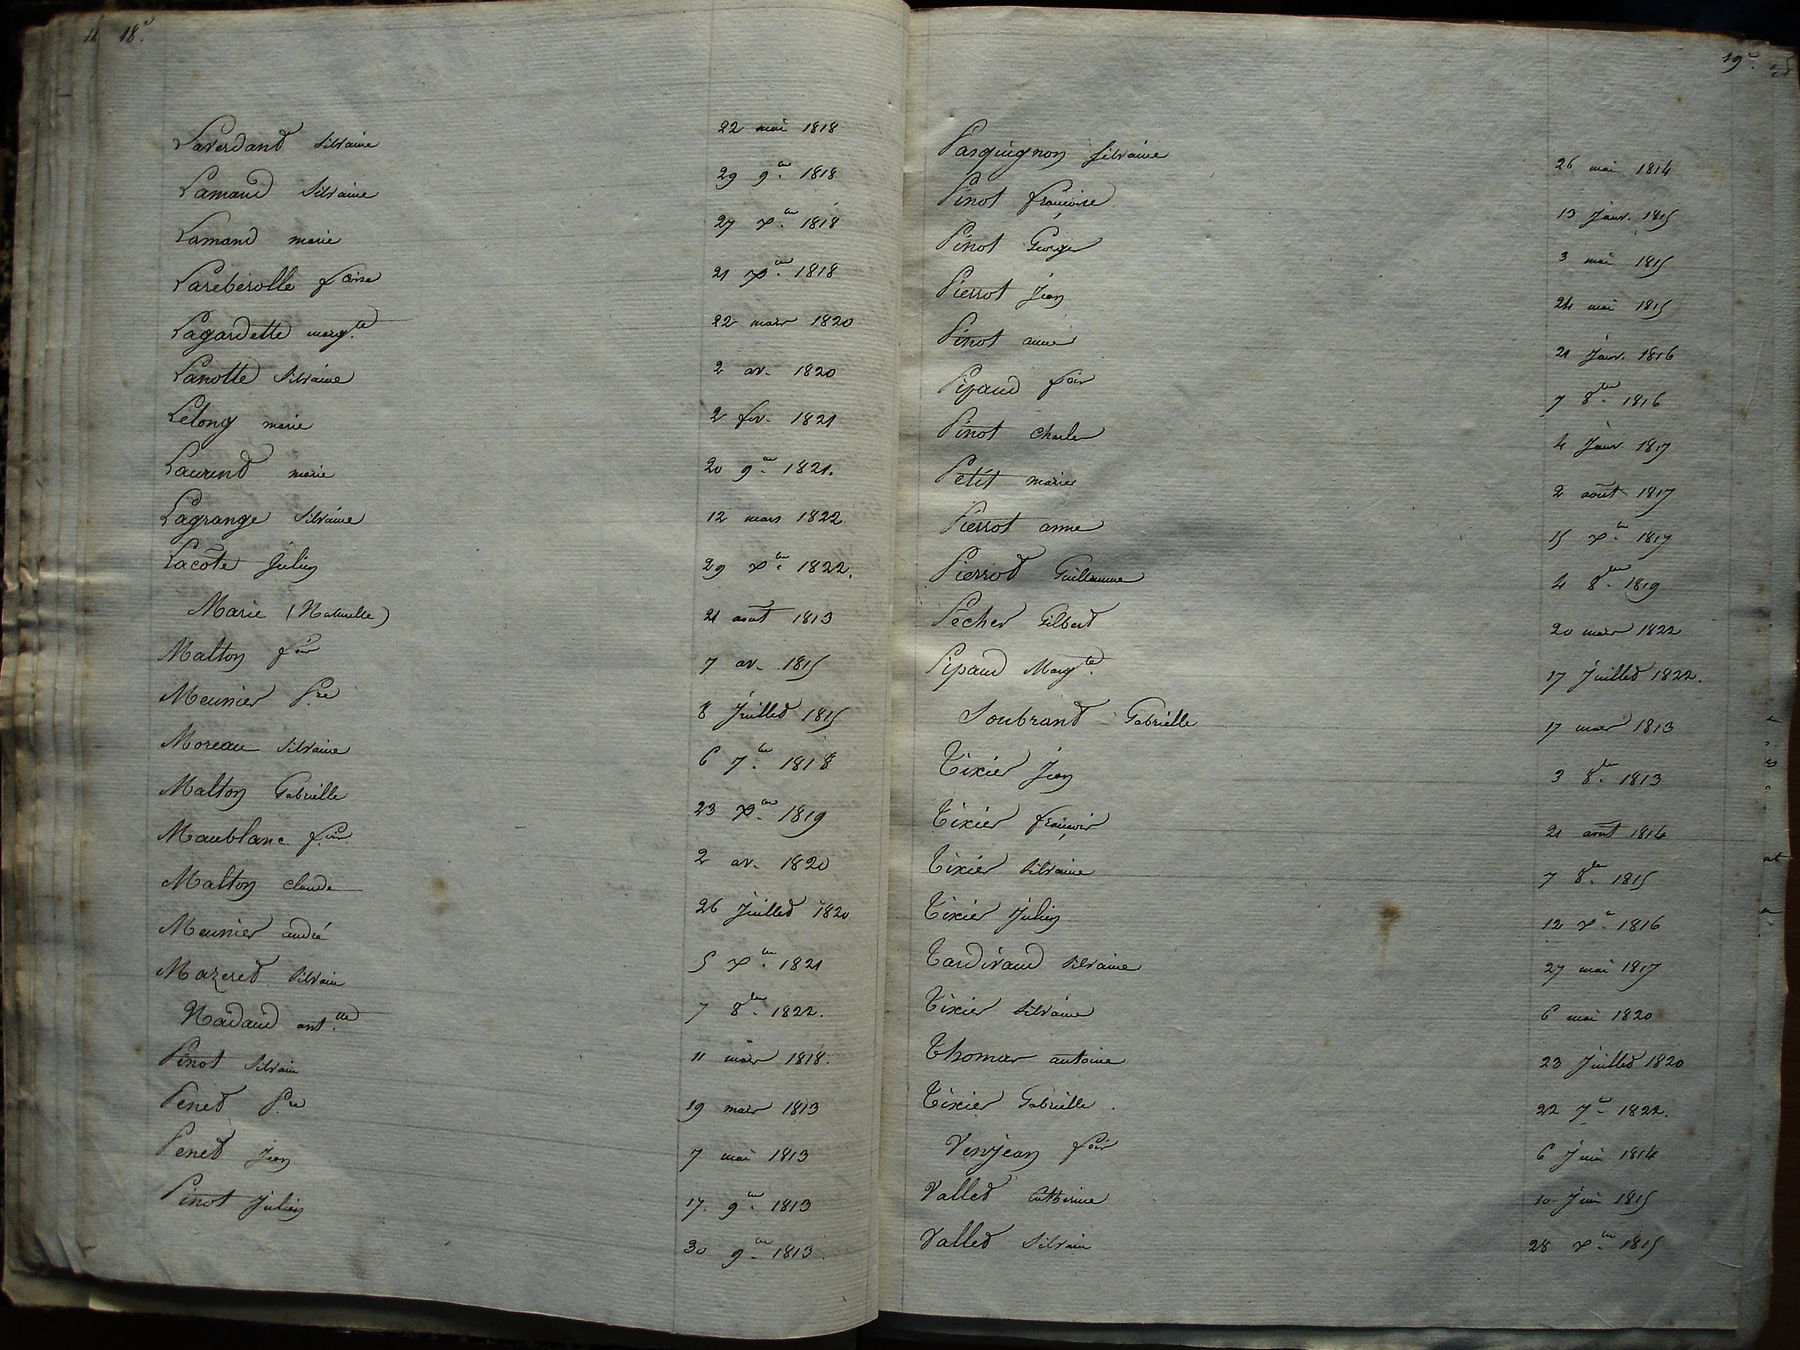 18.e
Laverdant Silvaine 22 mai 1818
Lamaud Silvaine 29 9.bre 1818
Lamaud marie 27 x.bre 1818
Lareberolle fcoise 21 xbre 1818
Lagardette marg.te 22 mars 1820
Lanotte Silvaine 2 av. 1820
Lelong marie 2 fev. 1821
Laurent marie 20 9bre 1821.
Lagrange Silvaine 12 mars 1822
Lacôte Julien 29 x.bre 1822.
Marie (Naturelle) 21 août 1813
Malton fcois 7 av. 1815
Meunier P.re 8 Juillet 1815
Moreau Silvaine 6 7.bre 1818
Malton Gabrielle 23 xbre 1819
Maublanc f.cois 2 av. 1820
Malton claude 26 Juillet 1820
Meunier andré 5 x.bre 1821
Mazeret Silvain 7 8.bre 1822.
Nadaud ant.tte 11 mars 1818.
Pinot Silvain 19 mars 1813
Penet P.re 7 mai 1813
Penet Jean 17. 9.bre 1813
Pinot Julien 30 9bre 1813
19.e
Pasquignon Silvaine 26 mai 1814
Pinot françoise 13 Janv. 1815
Pinot George 3 mai 1815
Pierrot Jean 24 mai 1815
Pinot anne 21 Janv. 1816
Pipaud fcois 7 8.bre 1816
Pinot Charles 4 Janv. 1817
Petit marie 2 août 1817
Pierrot anne 15 x.bre 1817
Pierrot Guillaume 4 8.bre 1819
Pêcher Gilbert 20 mars 1822
Pipaud Marg.te 17 Juillet 1822.
Soubrant Gabrielle 17 mars 1813
Tixier Jean 3 8.bre 1813
Tixier françois 21 août 1814
Tixier Silvaine 7 8bre 1815
Tixier Julien 12 x.bre 1816
Tardivaud Silvaine 27 mai 1817
Tixier Silvaine 6 mai 1820
Thomas antoine 23 Juillet 1820
Tixier Gabrielle. 22 7bre 1822.
Venjean fcois 6 Juin 1814
Vallet Catherine 10 Juin 1815
Vallet Silvain 28 x.bre 1815